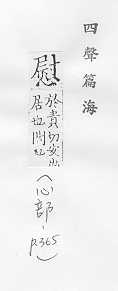 四聲篇海
慰
於貴切安也
居也問也
(心部、P.365)